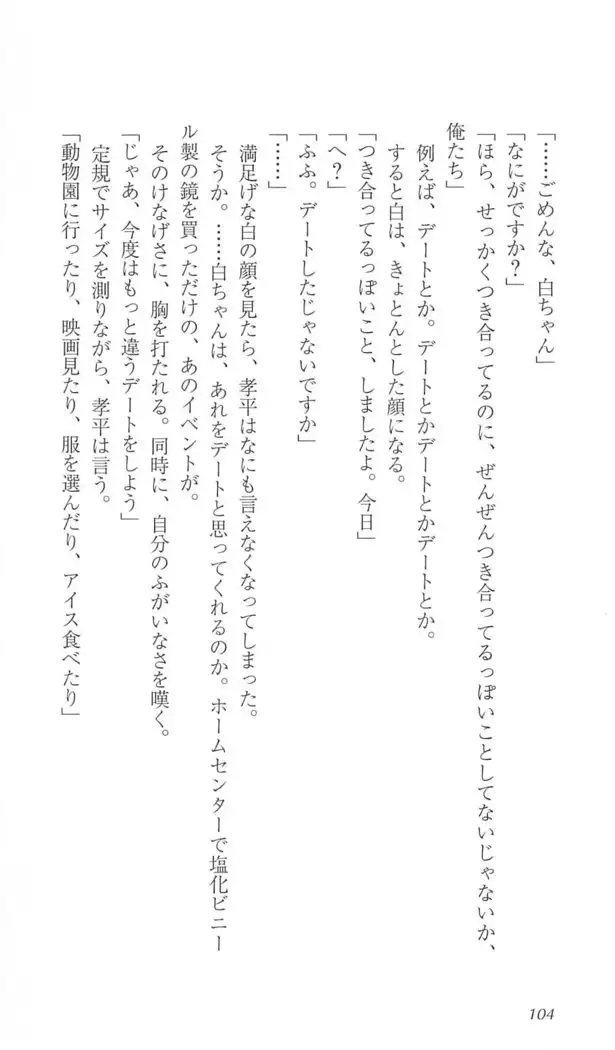 「……ごめんな、白ちゃん」
「なにがですか?」
「ほら、せっかくつき合ってるのに、ぜんぜんつき合ってるっぽいことしてないじゃないか、
俺たち」
例えば、デートとか。デートとかデートとかデートとか。
すると白は、きょとんとした顔になる。
「つき合ってるっぽいこと、しましたよ。今日」
「へ?」
「ふふ。デートしたじゃないですか」
「……」
満足げな白の顔を見たら、孝平はなにも言えなくなってしまった。
そうか。……白ちゃんは、あれをデートと思ってくれるのか。ホームセンターで塩化ビニー
ル製の鏡を買っただけの、あのイベントが。
そのけなげさに、胸を打たれる。同時に、自分のふがいなさを嘆く。
「じゃあ、今度はもっと違うデートをしよう」
定規でサイズを測りながら、孝平は言う。
「動物園に行ったり、映画見たり、服を選んだり、アイス食べたり」
104